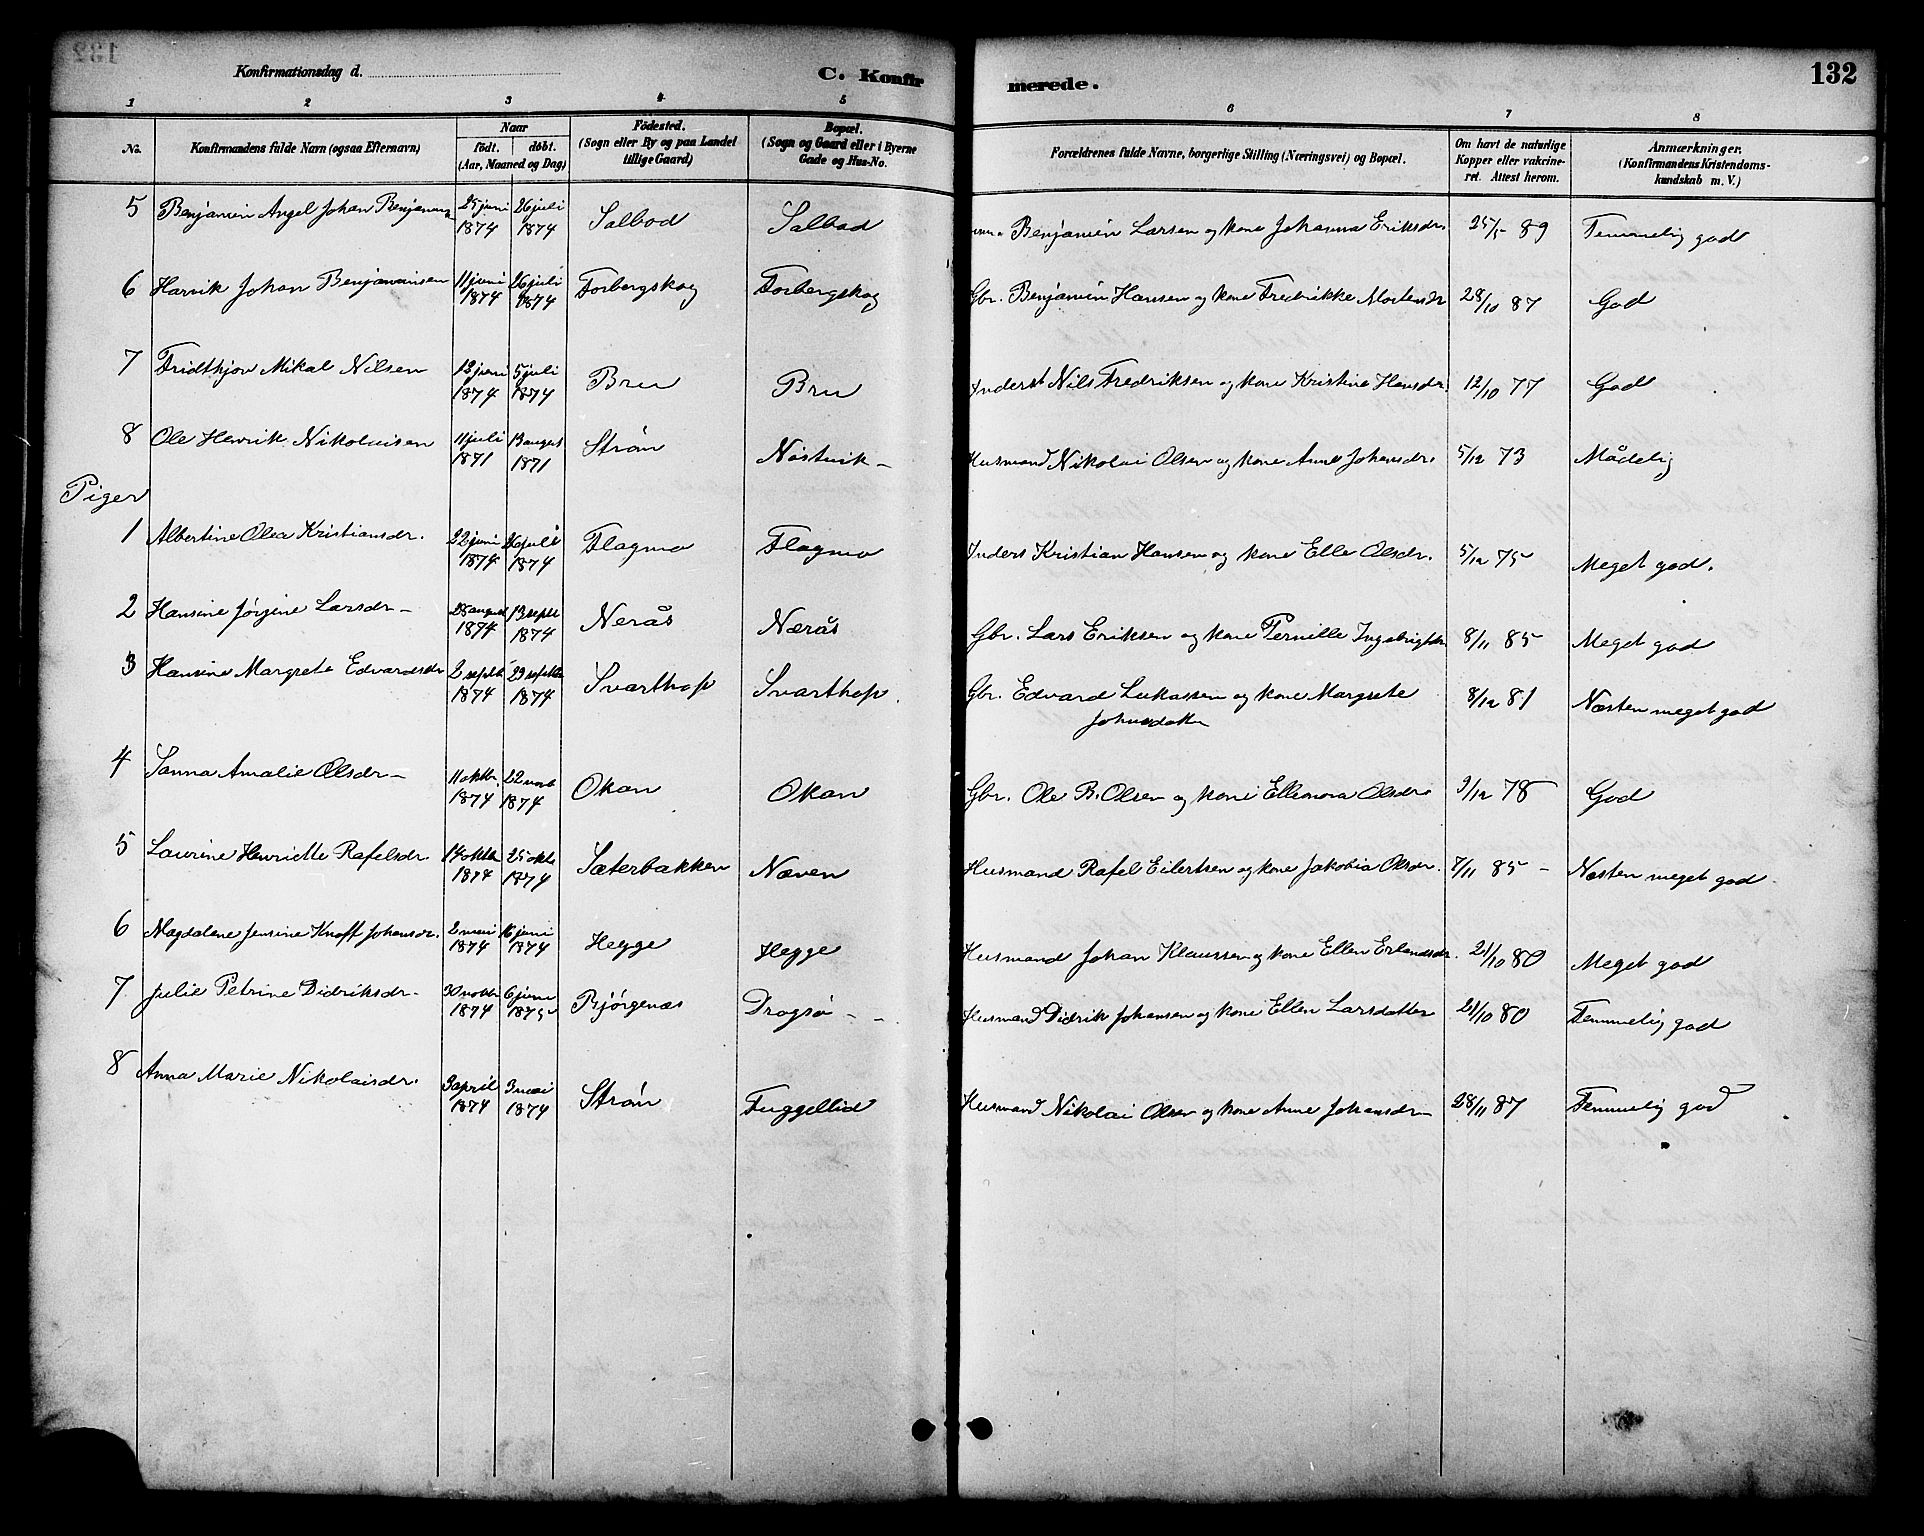 Konfirmationsdag d.
C. Konfir
merede.
132
1 2 3 4 5 6 7 8
No. Konfirmandens fulde Navn (ogsaa Efternavn) Naar födt. döbt. (Aar, Maaned og Dag) Födested. (Sogn eller By og paa Landet tillige Gaard) Bopæl. (Sogn og Gaard eller i Byerne Gade og Hus-No. Forældrenes fulde Navne, borgerlige Stilling (Næringsvei) og Bopæl. Om havt de naturlige Kopper eller vakcineret. Attest herom. Anmærkninger. (Konfirmandens Kristendomskundskab m. V.)
5 Benjamin Angel Johan Benjamins 25 juni 1874 26 juli 1874 Salbod Salbod Benjamin Larsen og kone Johanna Eriksdr 25/5 89 Temmelig god
6 Harvik Johan Benjaminsen 11 juni 1874 26 juli 1874 Forbergskog Forbergskog Gbr. Benjamin Hansen og kone Fredrikke Mortensdr 28/10 87 God
7 Fridthjov Mikal Nilsen 13 juni 1874 5 juli 1874 Bru Bru Inderst Nils Fredriksen og kone Kristine Hansdr. 12/10 77 God
8 Ole Henrik Nikolaisen 11 juli 1871 13 august 1871 Strøm Nøstvik - Husmand Nikolai Olsen og kone Anne Johansdr. 5/12 73 Mådelig
Piger
1 Albertine Olea Kristiansdr. 22 juni 1874 26 juli 1874 Flagmo Flagmo Inderst Kristian Hansen og kone Elle Olsdr. 5/12 75 Meget god.
2 Hansine Jørgine Larsdr - 28 august 1874 13 septb 1874 Nerås Nærås Gbr. Lars Eriksen og kone Pernille Ingebrigtsdr 8/11 85 Meget god
3 Hansine Margrete Edvardsdr 2 septb 1874 29 septbr 1874 Svarthop Svarthop. Gbr. Edvard Lukassen og kone Margrete Johnsdatter 8/12 81 Næsten meget god
4 Sanna Amalie Olsdr - 11 oktbr. 1874 22 novb 1874 Okan Okan Gbr. Ole B. Olsen og kone Ellenora Olsdr 9/12 78 God
5 Laurine Henriette Rafelsdr. 14 oktbr 1874 25 oktb 1874 Sæterbakken Næven Husmand Rafel Eilertsen og kone Jakobia Olsdr. 7/11 85 - Næsten meget god
6 Magdalene Jensine Knoff Johansdr. 2 mai 1874 16 juni 1874 Hegge Hegge Husmand Johan Klaussen og kone Ellen Erlandsdr. 21/10 80 Meget god
7 Julie Petrine Didriksdr - 30 novbr 1874 6 juni 1875 Bjørgenæs Dragsø - - Husmand Didrik Johansen og kone Ellen Larsdatter 21/10 80 Temmelig god
8 Anna Marie Nikolaisdr. 3 april 1874 3 mai 1874 Strøm Fuggellid Husmand Nikolai Olsen og kone Anne Johansdr - 28/11 87 Temmelig god